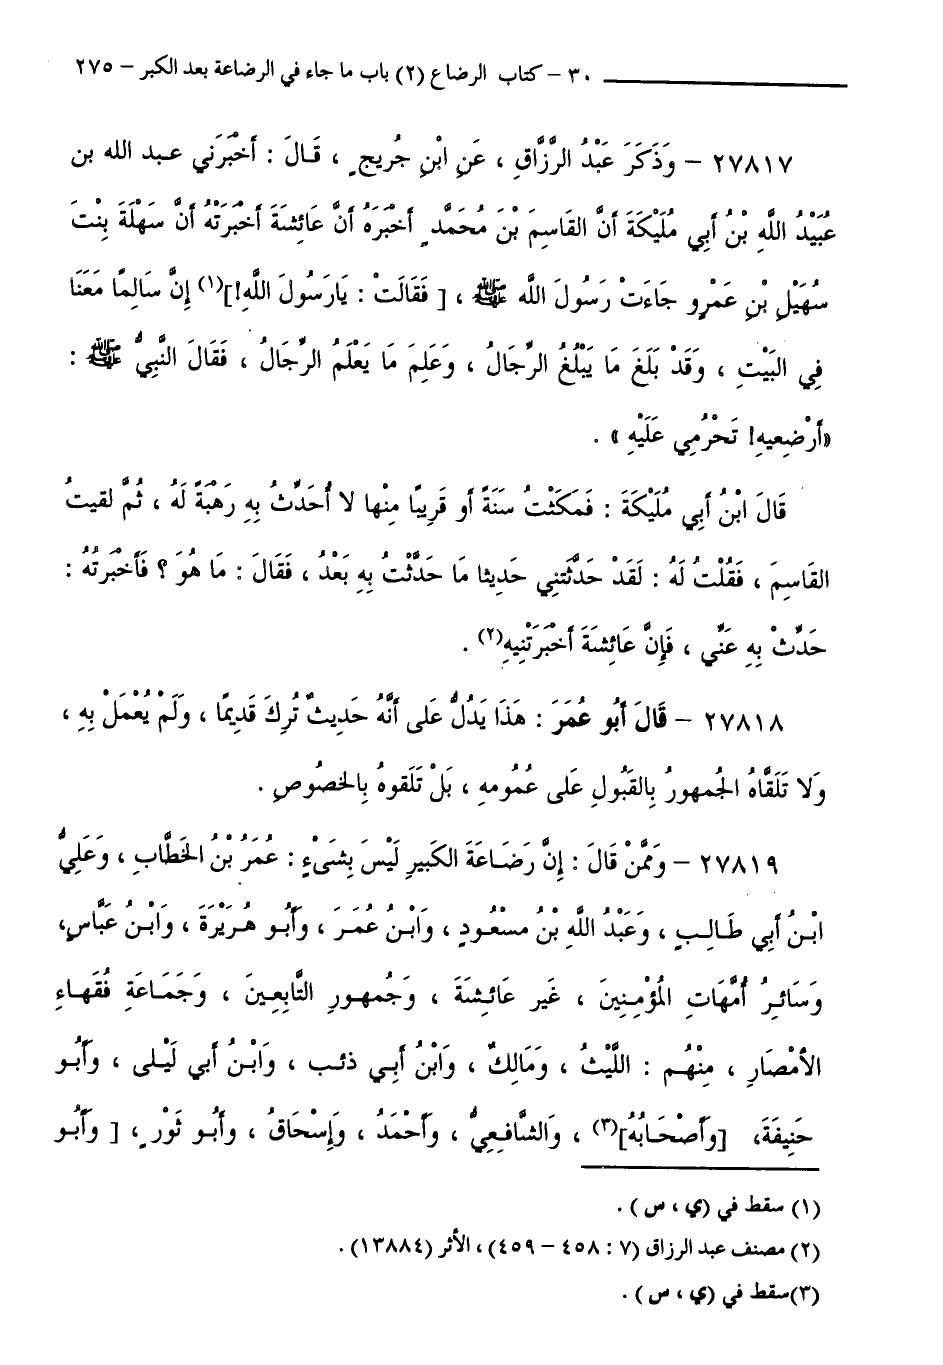 ٣٠ – كتاب الرضاع (٢) باب ما جاء في الرضاعة بعد الكبر – ٢٧٥
٢٧٨١٧ – وَذَكَرَ عَبْدُ الرَّزَّاقِ ، عَنِ ابْنِ جُريجٍ ، قَالَ : أَخْبَرَني عبد الله بن
عُبَيْدُ اللَّهِ بْنُ أَبِي مُلَيْكَةَ أَنَّ القَاسِمَ بْنَ مُحَمَّدٍ أَخْبَرَهُ أَنَّ عَائِشَةَ أَخْبَرَتْهُ أَنَّ سَهْلَةَ بِنْتَ
سُهَيْلِ بْنِ عَمْرٍو جَاءَتْ رَسُولَ اللَّه ﷺ ، [ فَقَالَتْ : يَارَسُولَ اللَّهِ!](١) إِنَّ سَالِمًا مَعَنَا
فِي البَيْتِ ، وَقَدْ بَلَغَ مَا يَبْلُغُ الرِّجَالُ ، وَعَلِمَ مَا يَعْلَمُ الرِّجَالُ ، فَقَالَ النَّبِيُّ ﷺ :
«أَرْضِعِيهِ! تَحْرُمِي عَلَيْهِ » .
قَالَ ابْنُ أَبِي مُلَيْكَةَ : فَمَكَثْتُ سَنَةً أَو قَرِيبًا مِنْها لا أُحَدِّثُ بِهِ رَهْبَةً لَهُ ، ثُمَّ لقيتُ
القَاسِمَ ، فَقُلْتُ لَهُ : لَقَدْ حَدَّثْتَنِي حَدِيثا مَا حَدَّثْتُ بِهِ بَعْدُ ، فَقَالَ : مَا هُوَ ؟ فَأَخْبَرتُهُ :
حَدِّثْ بِهِ عَنِّي ، فَإِنَّ عَائِشَةَ أَخْبَرَتْنِيهِ(٢) .
٢٧٨١٨ – قَالَ أَبُو عُمَرَ : هَذَا يَدُلُّ عَلى أَنَّهُ حَدِيثٌ تُرِكَ قَدِيمًا ، وَلَمْ يُعْمَلْ بِهِ ،
وَلا تَلَقَّاهُ الجُمهورُ بِالقَبُولِ عَلى عُمُومهِ ، بَلْ تَلَقوهُ بِالخصُوصِ .
٢٧٨١٩ – وَمِمَّنْ قَالَ : إِنَّ رَضَاعَةَ الكَبيرِ لَيْسَ بِشَىْءٍ : عُمَرُ بْنُ الخَطَّابِ ، وَعَلِيُّ
ابْنُ أَبِي طَالِبٍ ، وَعَبْدُ اللَّهِ بْنُ مسْعُودٍ ، وَابْنُ عُمَرَ ، وَأَبُو هُرَيْرَةَ ، وَابْنُ عَبَّاسٍ،
وَسَائِرُ أُمَّهَاتِ المُؤْمِنِينَ ، غَير عَائِشَةَ ، وَجُمهورِ التَّابِعِينَ ، وَجَمَاعَةِ فُقَهاءِ
الأمْصَارِ ، مِنْهُم : اللَّيْثُ ، وَمَالِكٌ ، وَابْنُ أَبِي ذئب ، وَابْنُ أَبي لَيْلى ، وَأَبُو
حَنِيفَةَ، [وَأَصْحَابُهُ](٣) ، وَالشَّافِعِيُّ ، وَأَحْمَدُ ، وَإِسْحَاقُ ، وأَبُو ثَوْرٍ ، [ وَأَبُو
(١) سقط في (ي ، س ) .
(٢) مصنف عبد الرزاق (٧ : ٤٥٨ – ٤٥٩) ، الأثر (١٣٨٨٤) .
(٣)سقط في (ي ، س ) .